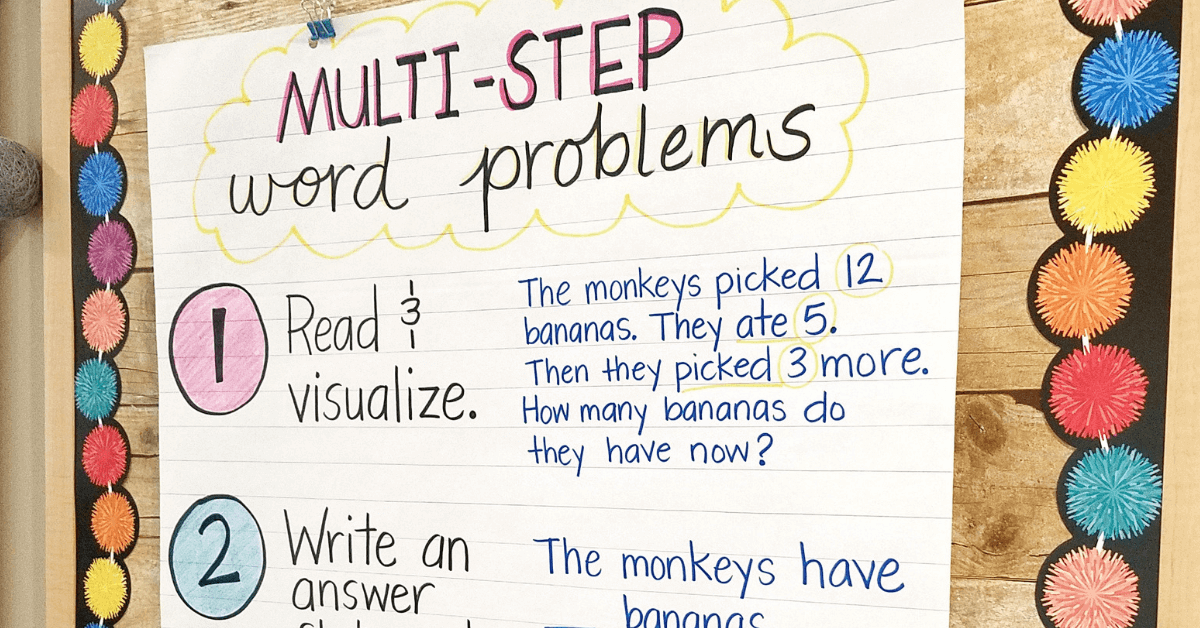 MULTI-STEP
word problems
1 Read &
visualize.
The monkeys picked 12
bananas. They ate 5.
Then they picked 3 more.
How many bananas do
they have now?
2 Write an
answer
The monkeys have
bananas